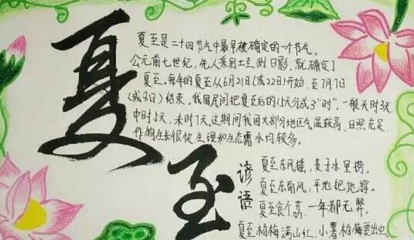 夏至
夏至是二十四节气中最早被确定的一个节气。
公元前七世纪,先人采用土圭测日影,就确定了
夏至。每年的夏至从6月21日(或22日)开始,至7月7日
(或8日)结束,我国民间把夏至后的15天分成3"时",一般头时3天
中时5天,末时7天,这期间我国大部分地区气温较高,日照充足
作物生长很快,生理和生态需水均较多。
谚语
夏至东风摇,麦子水里捞。
夏至东南风,平地把船撑。
夏至食个荔,一年都无弊。
夏至杨梅满山红,小暑杨梅要出虫